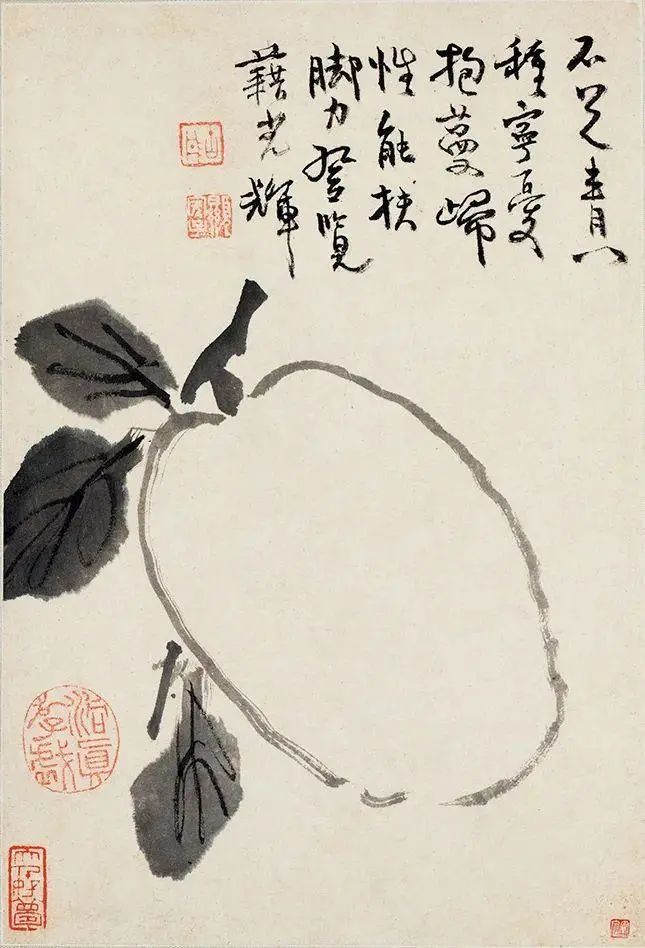 不是青門
種寧憂
抱蔓歸
性能扶
脚力登覽
藉光輝